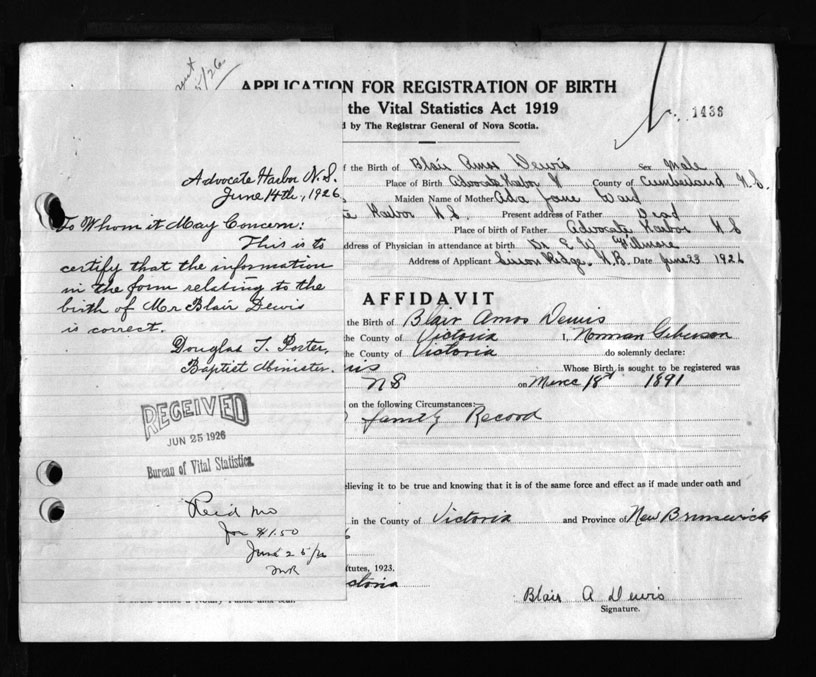 5/26
APPLICATION FOR REGISTRATION OF BIRTH
the Vital Statistics Act 1919
d by The Registrar General of Nova Scotia.
No. 1436
f the Birth of Blair Amos Dewis Sex Male
Place of Birth Advocate Harbor County of Cumberland N.S.
Maiden Name of Mother Ada Jane Ward
te Harbor N.S. Present address of Father Dead
Place of birth of Father Advocate Harbor N S
ddress of Physician in attendance at birth Dr E W Fillmore
Address of Applicant Ridge. N.B. Date June 23 1926
AFFIDAVIT
the Birth of Blair Amos Dewis
he County of Victoria I, Norman
he County of Victoria do solemnly declare:
Whose Birth is sought to be registered was
N S on 18 1891
on the following Circumstances:
family Record
elieving it to be true and knowing that it is of the same force and effect as if made under oath and
in the County of Victoria and Province of New Brunswick
tutes, 1923.
ctoria
Blair A Dewis
Signature.
Advocate Harbor N.S.
June 14th, 1926
To Whom it May Concern:
This is to
certify that the information
in the form relating to the
birth of Mr Blair Dewis
is correct.
Douglas T. Porter,
Baptist Minister.
RECEIVED
JUN 25 1926
Bureau of Vital Statistics
for $1.50
June 25/26